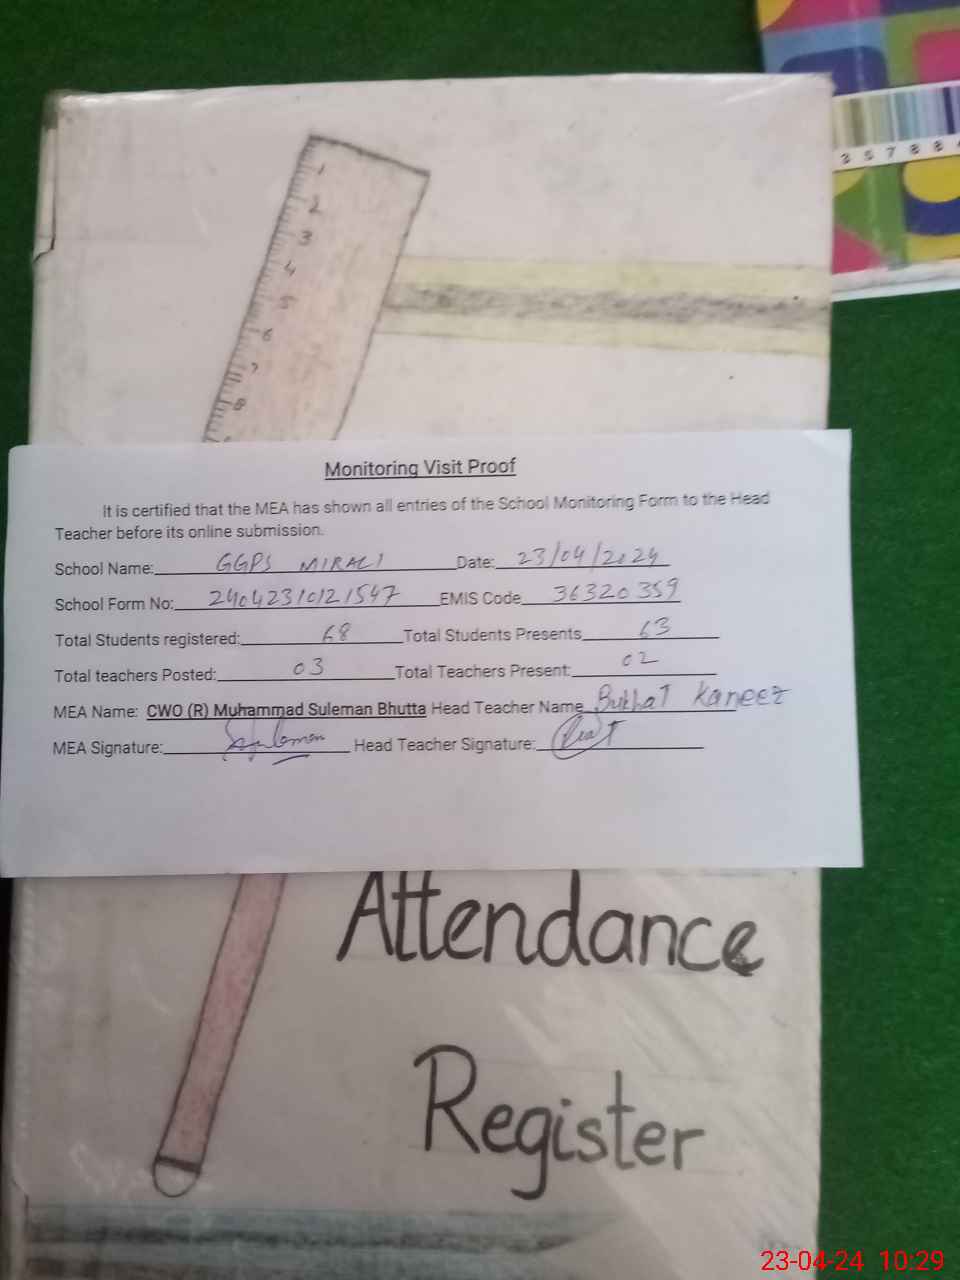 3 5 7 8 8
1
2
3
4
5
6
7
8
Monitoring Visit Proof
It is certified that the MEA has shown all entries of the School Monitoring Form to the Head
Teacher before its online submission.
School Name: GGPS MIRALI Date: 23/04/2024
School Form No: EMIS Code 36320359
Total Students registered: 68 Total Students Presents 63
Total teachers Posted: 03 Total Teachers Present: 02
MEA Name: CWO (R) Muhammad Suleman Bhutta Head Teacher Name Bukhat Kaneez
MEA Signature: Suleman Head Teacher Signature:
Attendance
Register
23-04-24 10:29